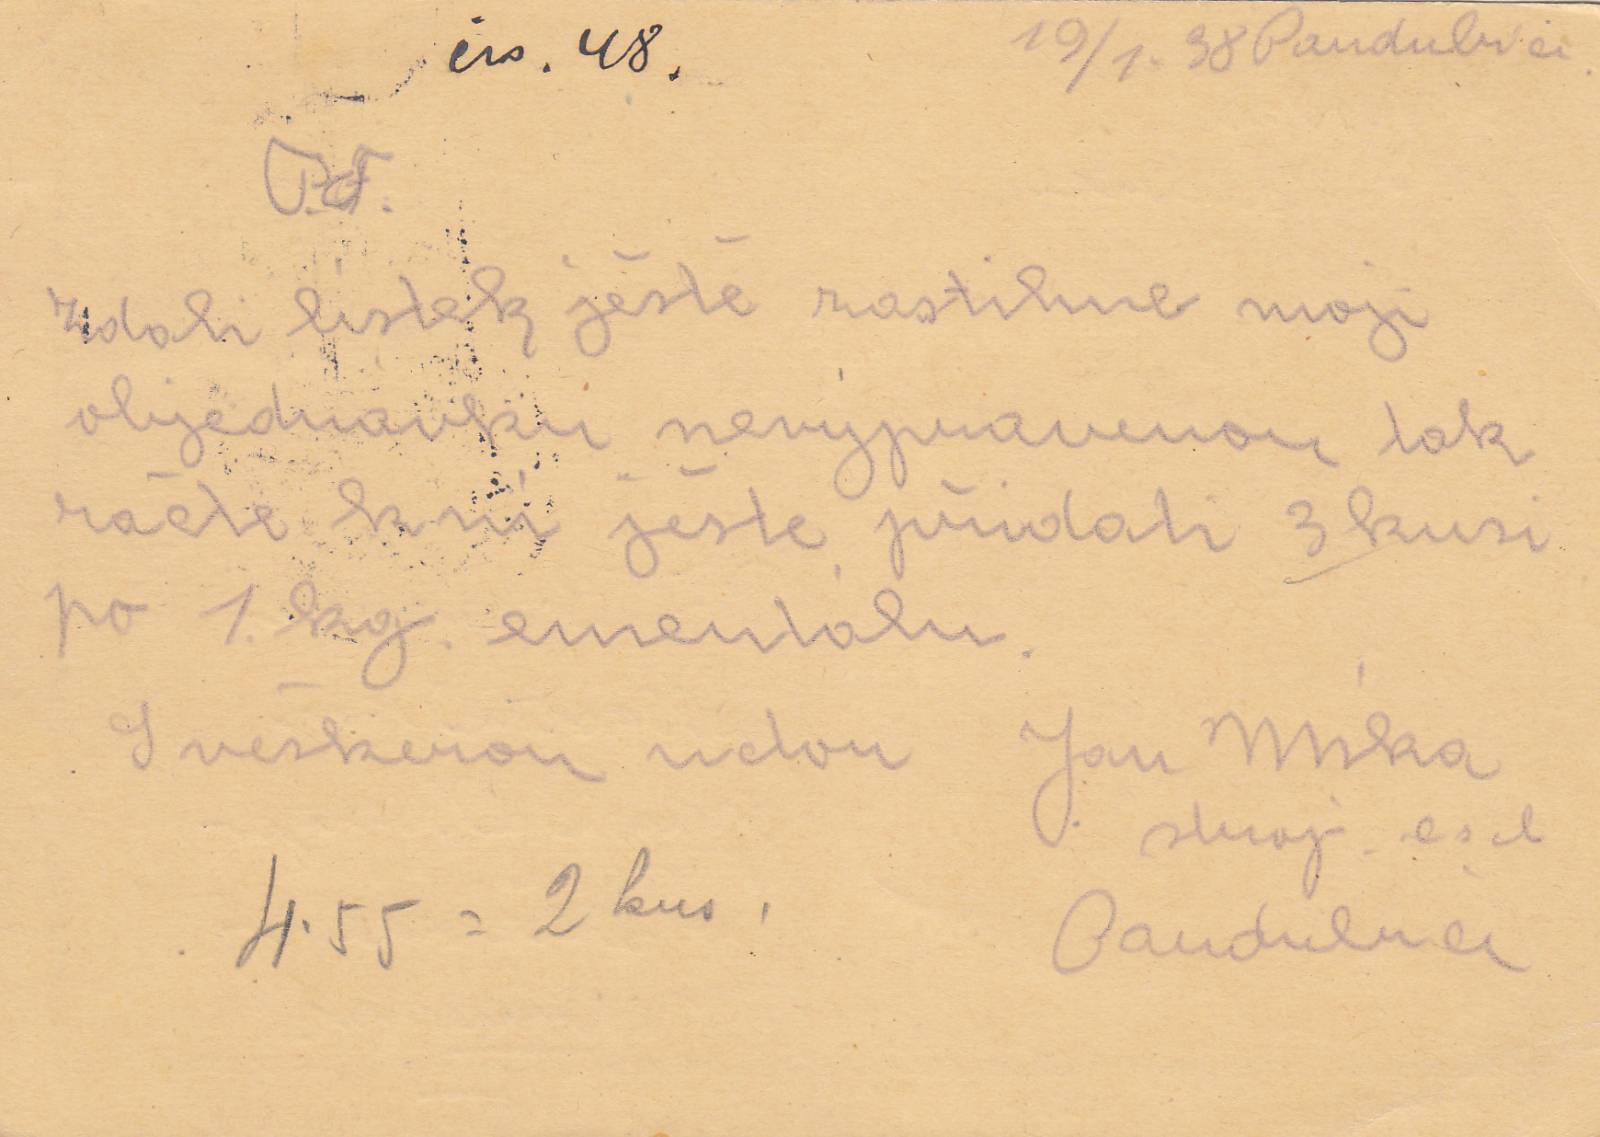 čís. 48.
19/1. 38 Pardubice.
P.T.
Zdali lístek ještě zastihne moji
objednávku nevypravenou tak
račte k ní ještě přidati 3 kusi
po 1. kg. ementálu.
S veškerou uctou Jan Miška
stroj. č.s.d
Pardubice
4.55 = 2 kus.